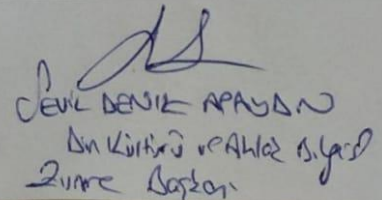 SEVİL DENİZ APAYDIN
Din Kültürü ve Ahlak Bilgisi
Zümre Başkanı